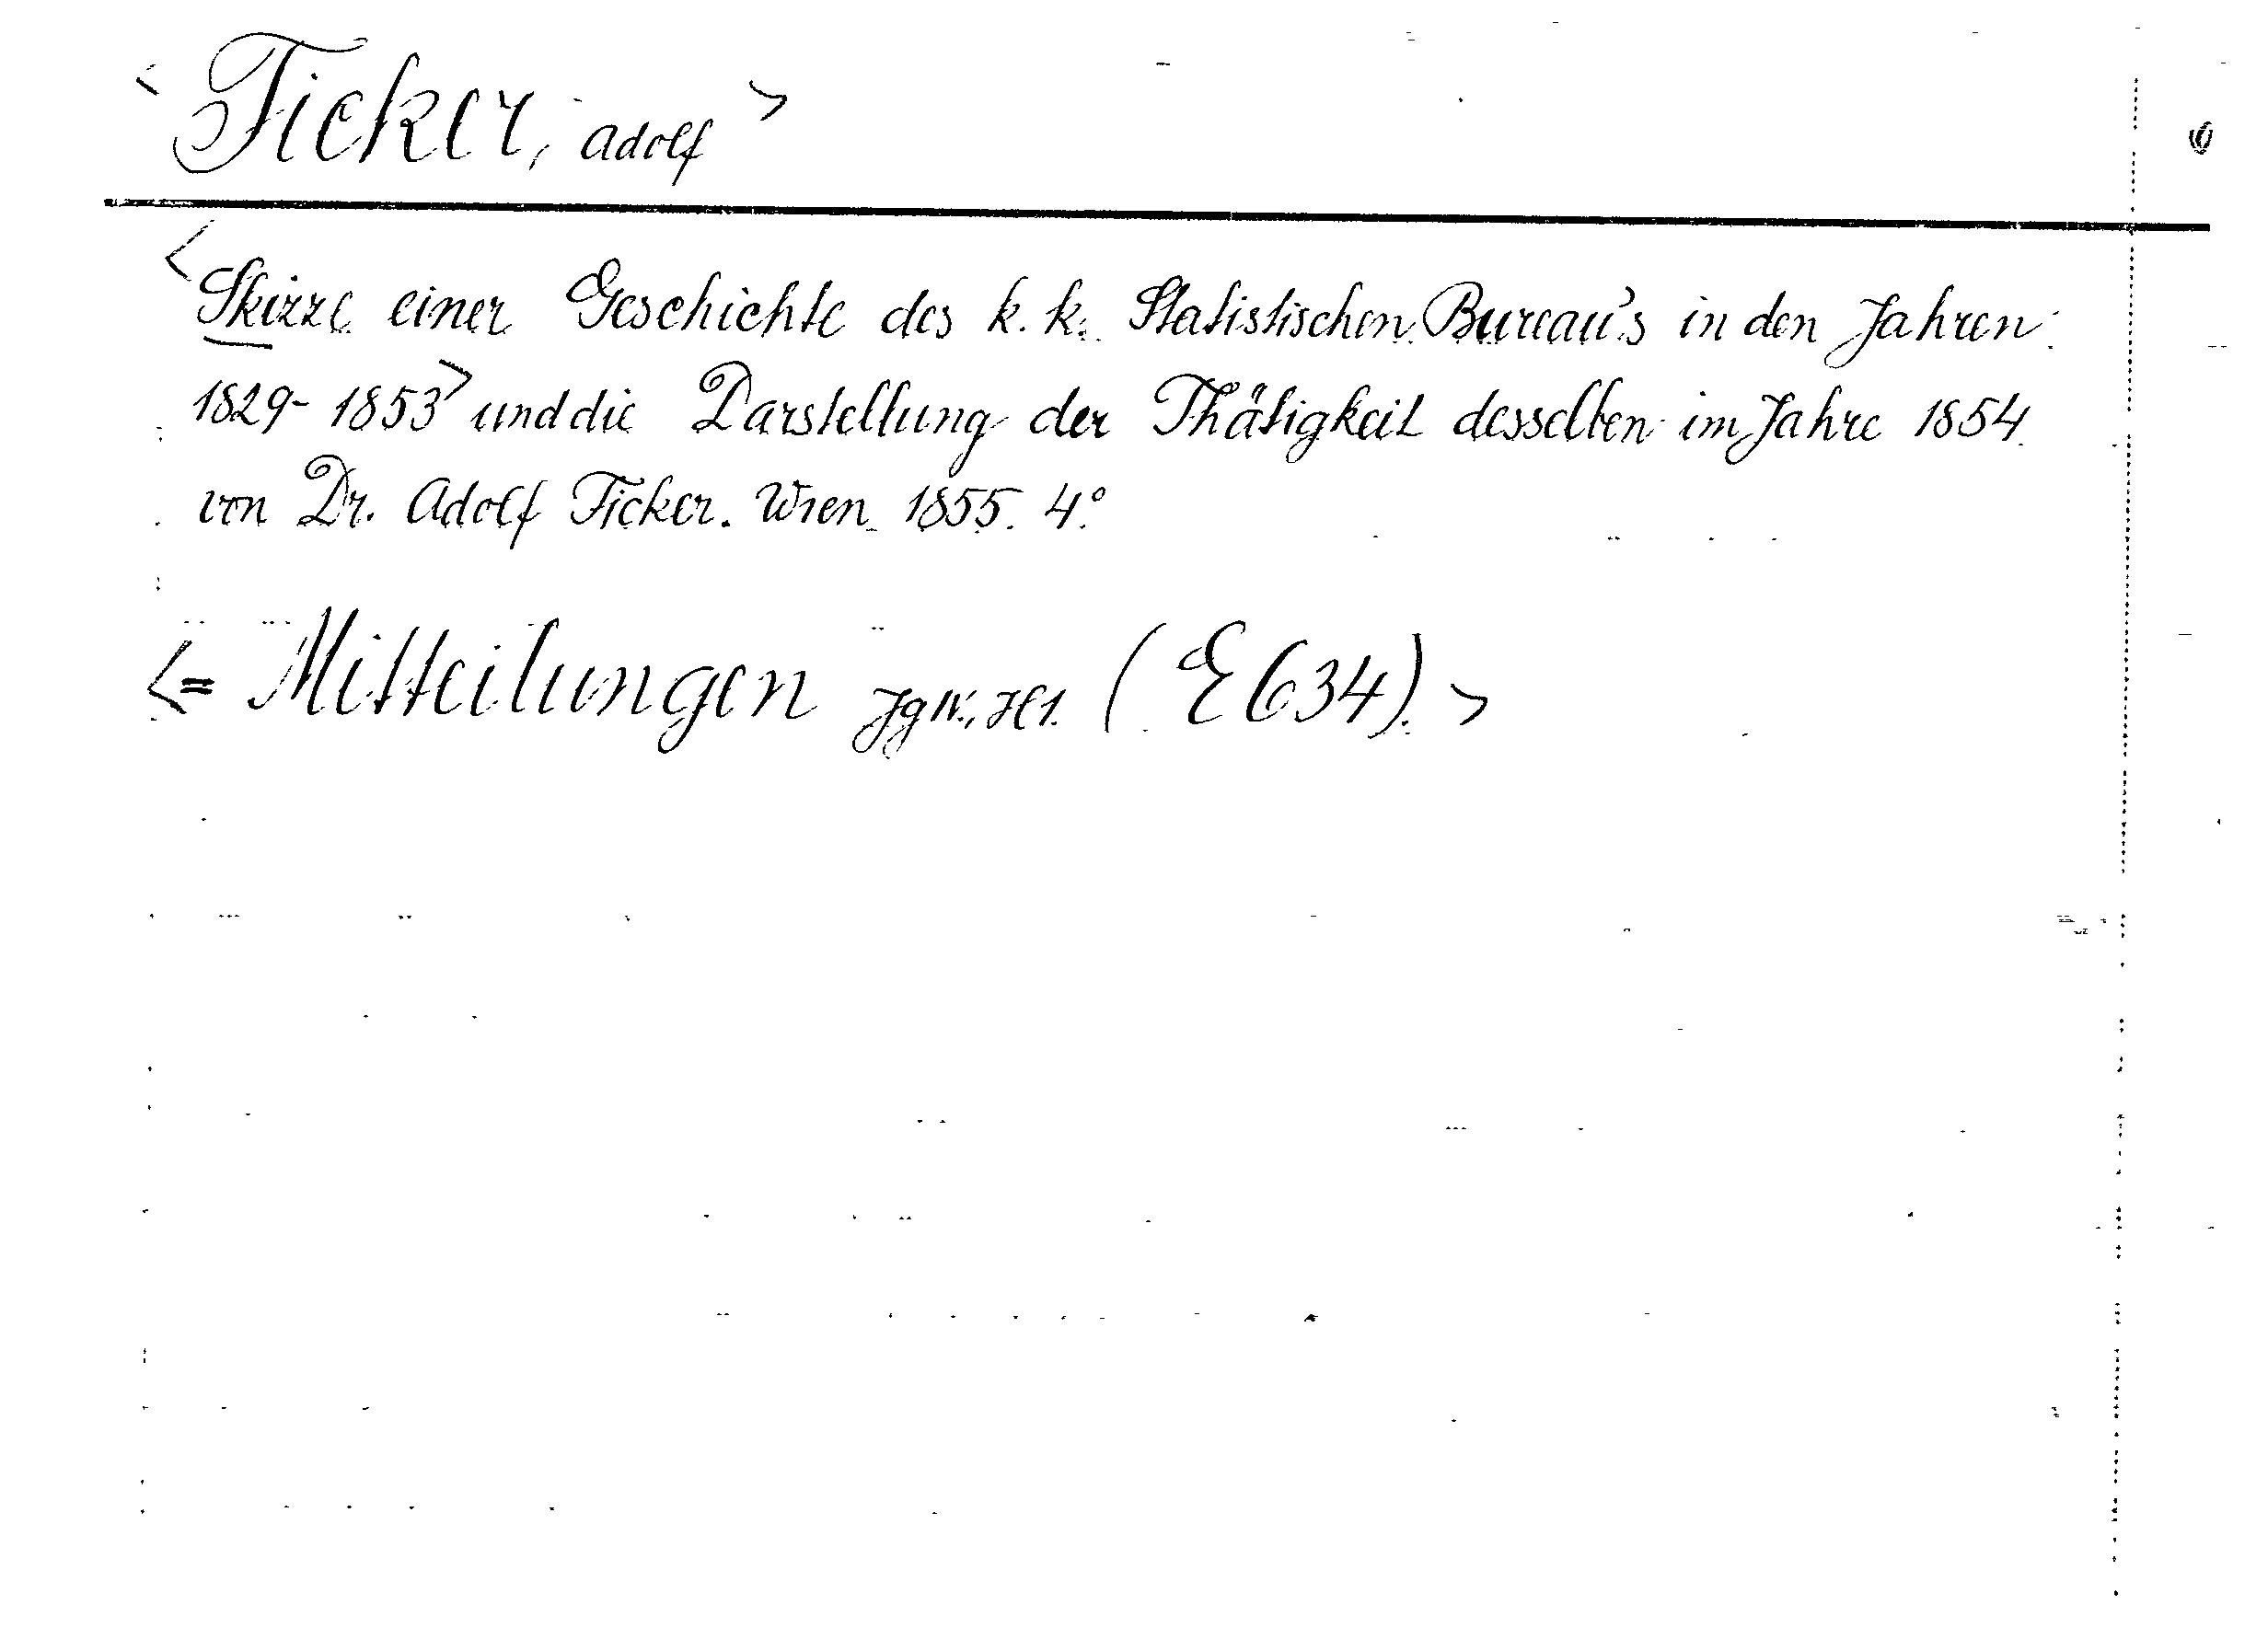 < Ficker, Adolf >
< Skizze einer Geschichte des k. k. Statistischen Bureau's in den Jahren
1829-1853 > und die Darstellung der Thätigkeit desselben im Jahre 1854
von Dr. Adolf Ficker. Wien 1855. 4°
<= Mitteilungen Jg IV., H1. (E634). >